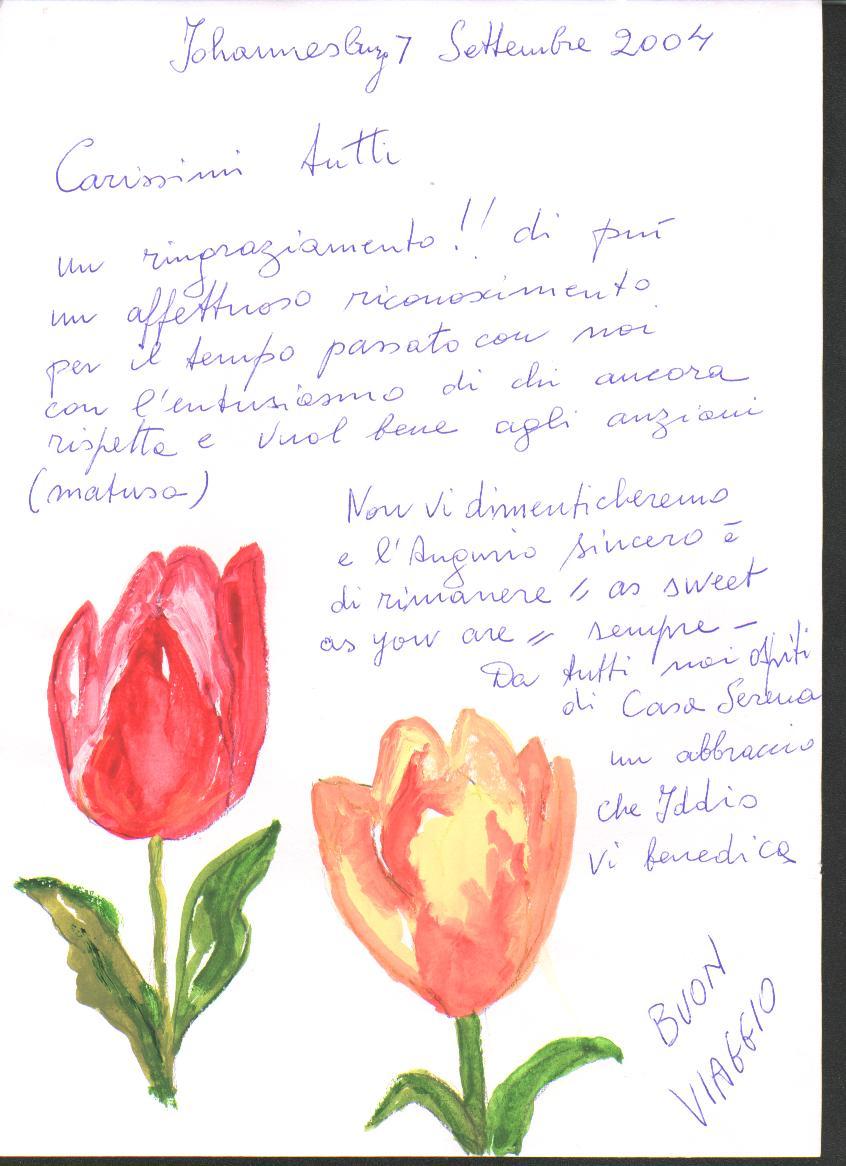 Johannesburg 7 Settembre 2004
Carissimi tutti
un ringraziamento!! di più
un affettuoso riconoscimento
per il tempo passato con noi
con l'entusiasmo di chi ancora
rispetta e vuol bene agli anziani
(matusa)
Non vi dimenticheremo
e l'Augurio sincero è
di rimanere " as sweet
as you are " sempre -
Da tutti noi ospiti
di Casa Serena
un abbraccio
che Iddio
vi benedica
BUON
VIAGGIO